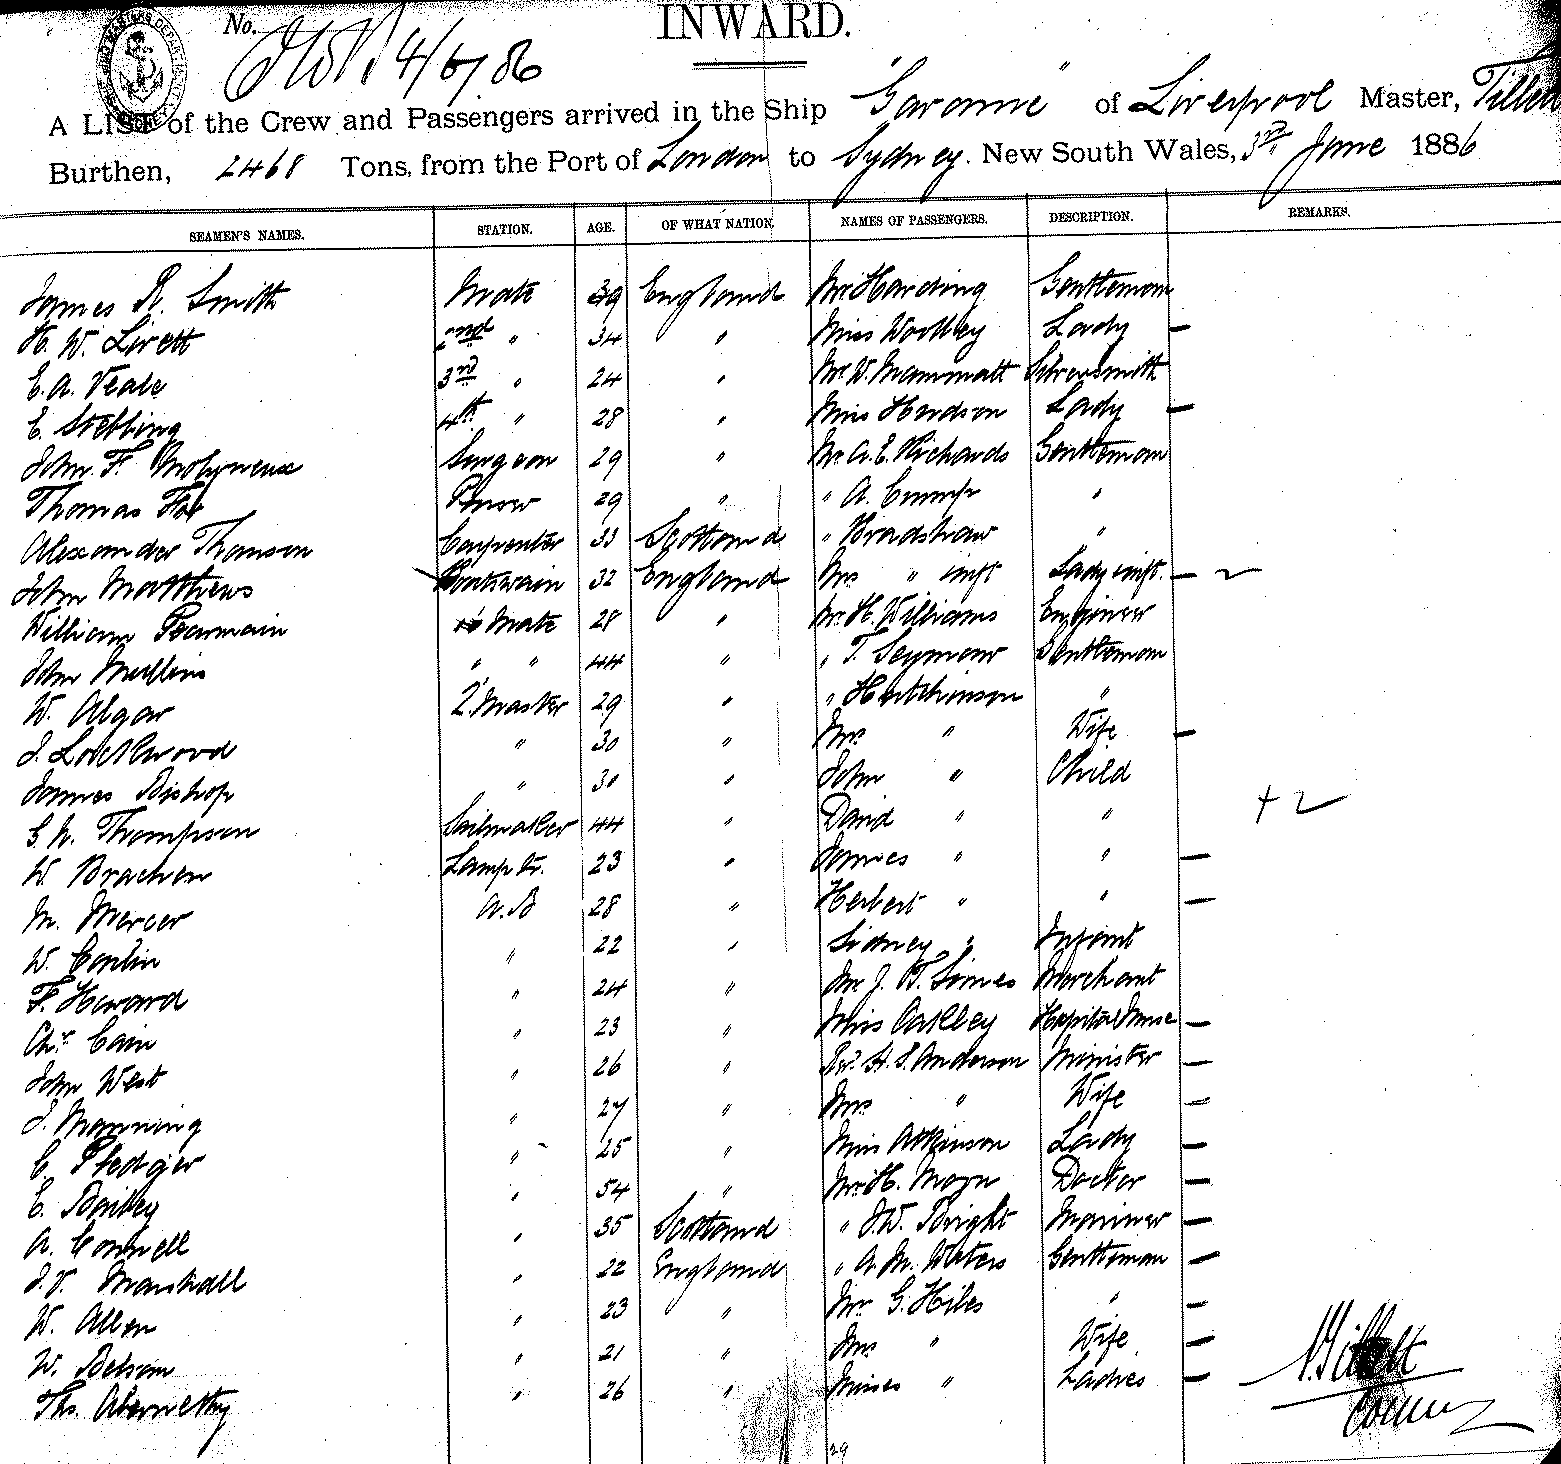 INWARD.
No. 4/6/86
A LIST of the Crew and Passengers arrived in the Ship "Garonne" of Liverpool Master, Tillett
Burthen, 2468 Tons, from the Port of London to Sydney. New South Wales, 3rd June 1886
SEAMEN'S NAMES. STATION. AGE. OF WHAT NATION. NAMES OF PASSENGERS. DESCRIPTION. REMARKS.
James R. Smith Mate 39 England Mr. Harding Gentleman
H. W. Livett 2nd " 34 " Miss Woolley Lady —
E. A. Veale 3rd " 24 " Mr. W. Mammatt Silversmith
E. Stebbing 4th " 28 " Miss Hudson Lady —
John. F. Molyneux Surgeon 29 " Mr. A. E. Richards Gentleman
Thomas Fox Purser 29 " " A. Crump "
Alexander Thomson Carpenter 33 Scotland " Bradshaw "
John Matthews Boatswain 32 England Mrs " & inft Lady & inft. —
William Pearmain " Mate 28 " Mr. H. Williams Engineer
John Mullins " " 44 " " T. Seymour Gentleman
W. Algar Q. Master 29 " " Hutchinson "
J. Lockwood " 30 " Mrs. " Wife —
James Bishop " 30 " John " Child
G. W. Thompson Sailmaker 44 " David " " + 2
W. Brachen Lamp Tr. 23 " James " " —
M. Mercer A.B 28 " Herbert " " —
W. Conlin " 22 " Sidney " Infant
F. Howard " 24 " Mr J. T. Simes Merchant
Chr. Cain " 23 " Miss Oakley Hospital Nurse —
John West " 26 " Revd. H. S. Anderson Minister —
J. Manning " 27 " Mrs " Wife —
C. Pledger " 25 " Miss Atkinson Lady —
E. Bailey " 54 " Mr. H. Doctor —
A. Connell " 35 Scotland " J. W. Bright Mariner —
J. V. Marshall " 22 England " A. M. Waters Gentleman —
W. Allen " 23 " Mr. G. Hiles " —
W. Belsom " 21 " Mrs " Wife —
Ths. Abernethy " 26 " Misses " Ladies —
Tillett
29